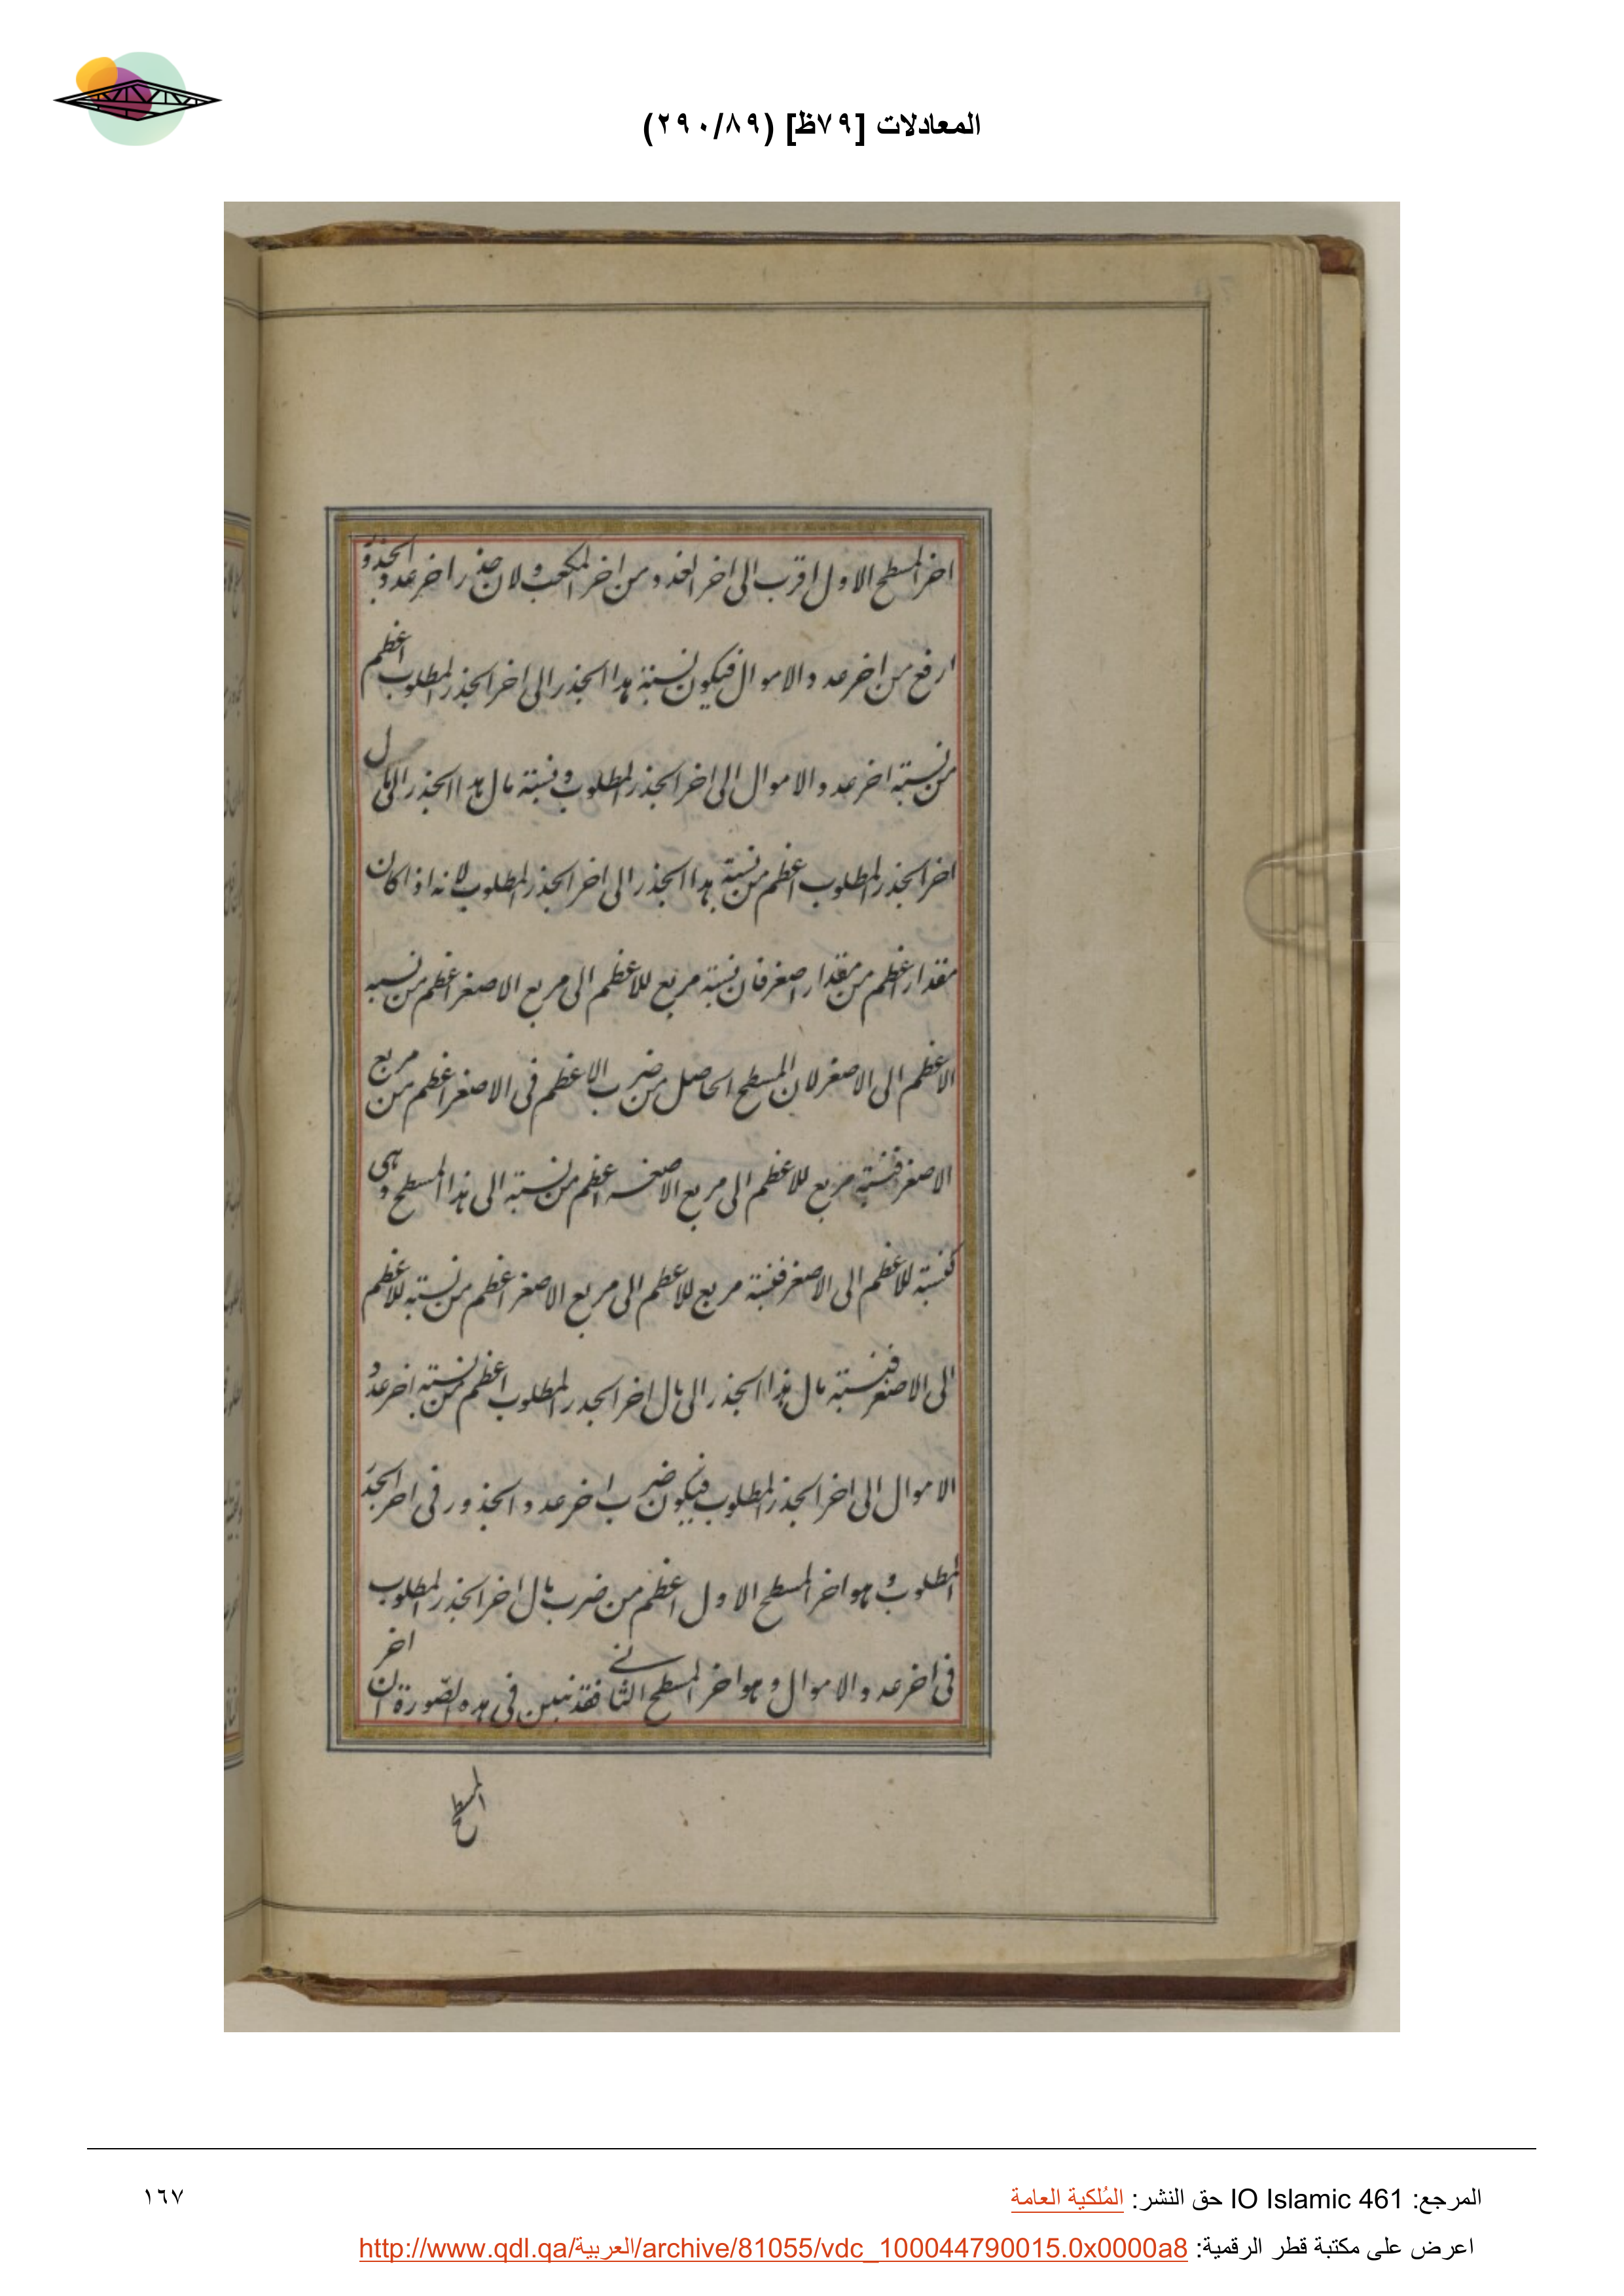 المعادلات [٧٩ظ] (٢٩٠/٨٩)
اخر المسطح الاول اقرب الى اخر العدد من اخر المكعب ولان جذر اخر عدد الجذور
ارفع من اخر عدد الاموال فيكون نسبة هذا الجذر الى اخر الجذر المطلوب اعظم
من نسبة اخر عدد الاموال الى اخر الجذر المطلوب ونسبة مال هذا الجذر الى مال
اخر الجذر المطلوب اعظم من نسبة هذا الجذر الى اخر الجذر المطلوب لانه اذا كان
مقدار اعظم من مقدار اصغر فان نسبة مربع للاعظم الى مربع الاصغر اعظم من نسبة
الاعظم الى الاصغر لان المسطح الحاصل من ضرب الاعظم فى الاصغر اعظم من مربع
الاصغر فنسبة مربع للاعظم الى مربع الاصغر اعظم من نسبته الى هذا المسطح وهى
كنسبة للاعظم الى الاصغر فنسبة مربع للاعظم الى مربع الاصغر اعظم من نسبة للاعظم
الى الاصغر فنسبة مال هذا الجذر الى مال اخر الجذر المطلوب اعظم من نسبة اخر عدد
الاموال الى اخر الجذر المطلوب فيكون ضرب اخر عدد الجذور فى اخر الجذر
المطلوب وهو اخر المسطح الاول اعظم من ضرب مال اخر الجذر المطلوب
فى اخر عدد الاموال وهو اخر المسطح الثانى فقد تبين فى هذه الصورة ان اخر
المسطح
المرجع: IO Islamic 461 حق النشر: المُلكية العامة
١٦٧
اعرض على مكتبة قطر الرقمية: http://www.qdl.qa/العربية/archive/81055/vdc_100044790015.0x0000a8